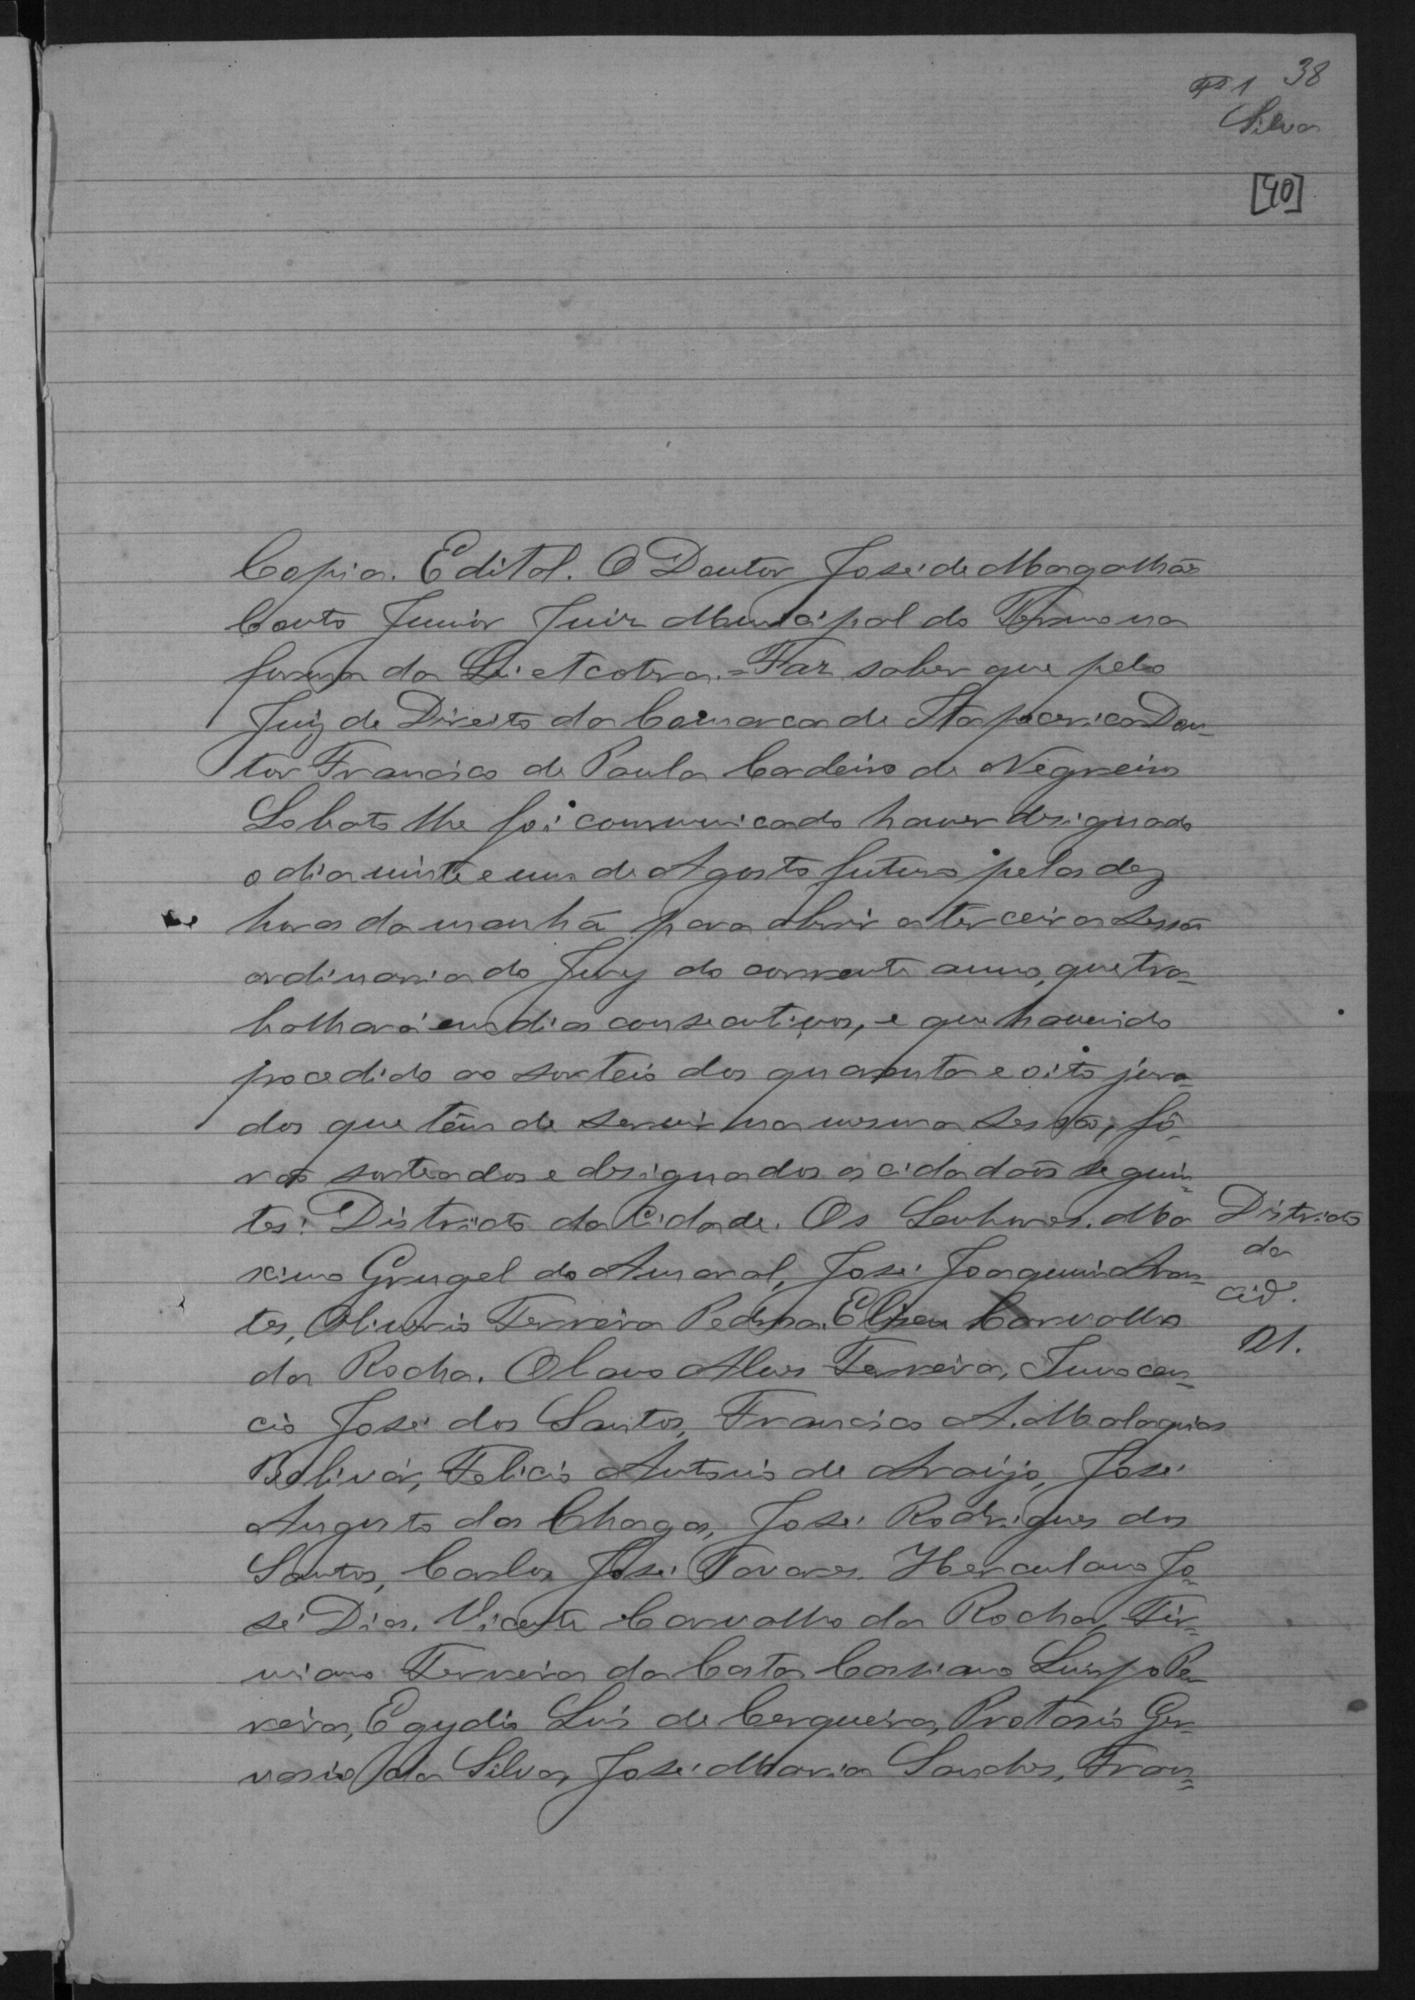 38
Fs 1
Silva
[40]
Copia. Edital. O Doutor José de Magalhães
Couto Junior Juiz Municipal do Termo na
forma da Lei etcotera.=Faz saber que pelo
Juiz de Direito da Comarca de Itapecerica Dou-
tor Francisco de Paula Cordeiro de Negreiros
Lobato lhe foi communicado haver designado
o dia vinte e um de Agosto futuro pelas dez
horas da manhã para abrir a terceira sessão
ordinaria do Jury do corrente anno, que tra-
balhará em dias consecutivos, e que havendo
procedido ao sorteio dos quarenta e oito jura-
dos que têm de servir na mesma sessão, fô-
rão sorteados e designados os cidadãos seguin-
tes: Districto da Cidade. Os Senhores. Ma
ximo Grugel do Amaral, José Joaquim Aran-
tes, Oliverio Ferreira Pedrosa. Eliseu Carvalho
da Rocha. Olavo Alves Ferreira, Innocen-
cio José dos Santos, Francisco A. Malaquias
Bolivár, Felicio Antonio de Araújo, José
Augusto das Chagas, José Rodrigues dos
Santos, Carlos José Tavares. Herculano Jo-
sé Dias. Vicente Carvalho da Rocha, Fir-
miano Ferreira da Costa Cassiano Luis Pe-
reira, Egydio Luis de Cerqueira, Protasio Ger-
vasio da Silva, José Maria Sanches, Fran-
Districto
da
cid.
21.